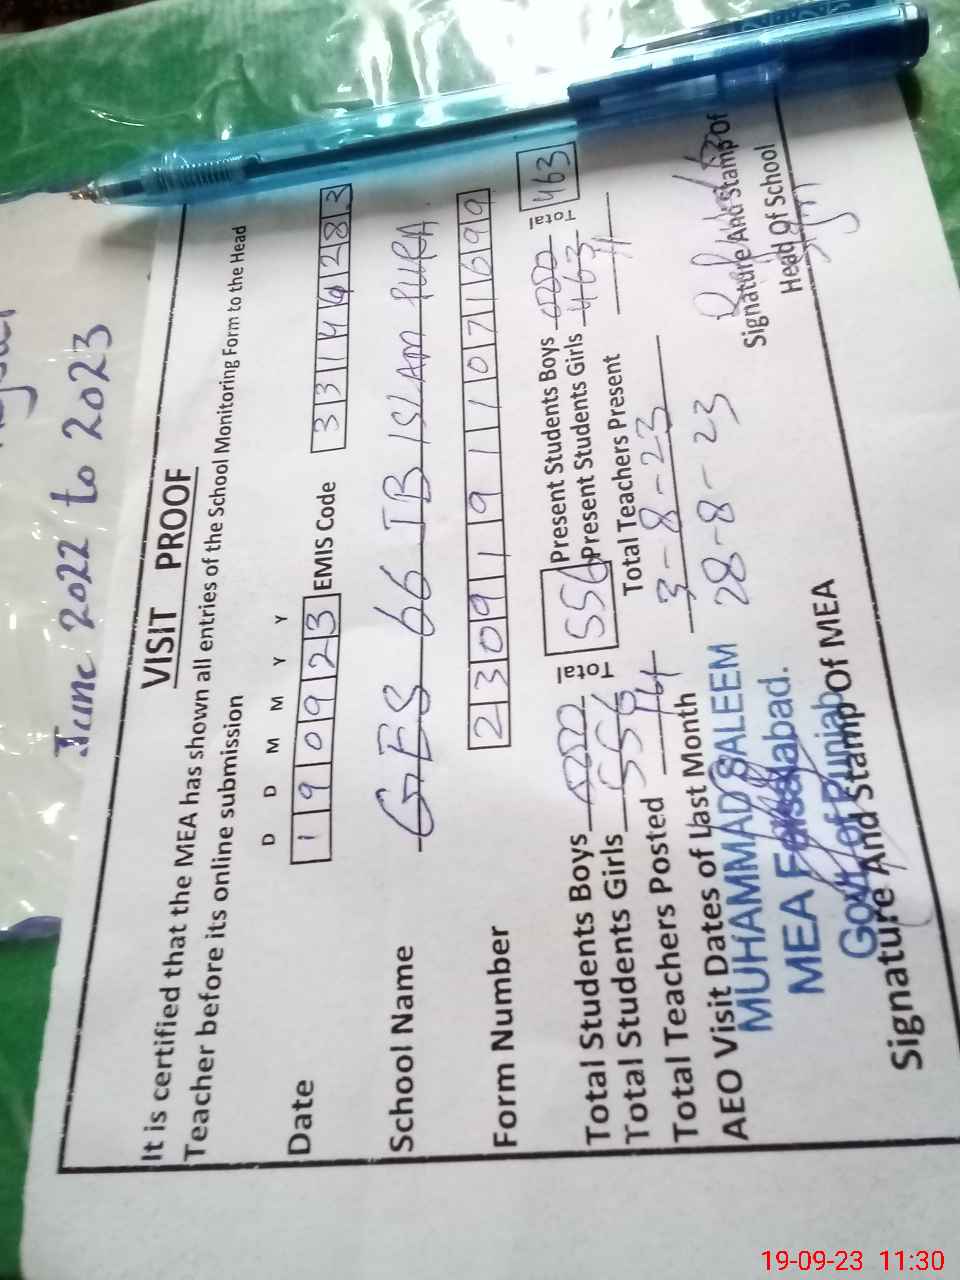 June 2022 to 2023
VISIT PROOF
It is certified that the MEA has shown all entries of the School Monitoring Form to the Head
Teacher before its online submission
D D M M Y Y
Date 190923 EMIS Code 33144283
School Name GES 66 JB ISLAM PURA
Form Number 230919191107169 9
Total Students Boys Total 556 Present Students Boys Total 463
Total Students Girls 556 Present Students Girls 463
Total Teachers Posted 14 Total Teachers Present 11
AEO Visit Dates of Last Month 3-8-23
28-8-23
MUHAMMAD SALEEM
MEA Faisalabad.
Govt of Punjab
Signature And Stamp Of MEA
Signature And Stamp Of
Head Of School
19-09-23 11:30